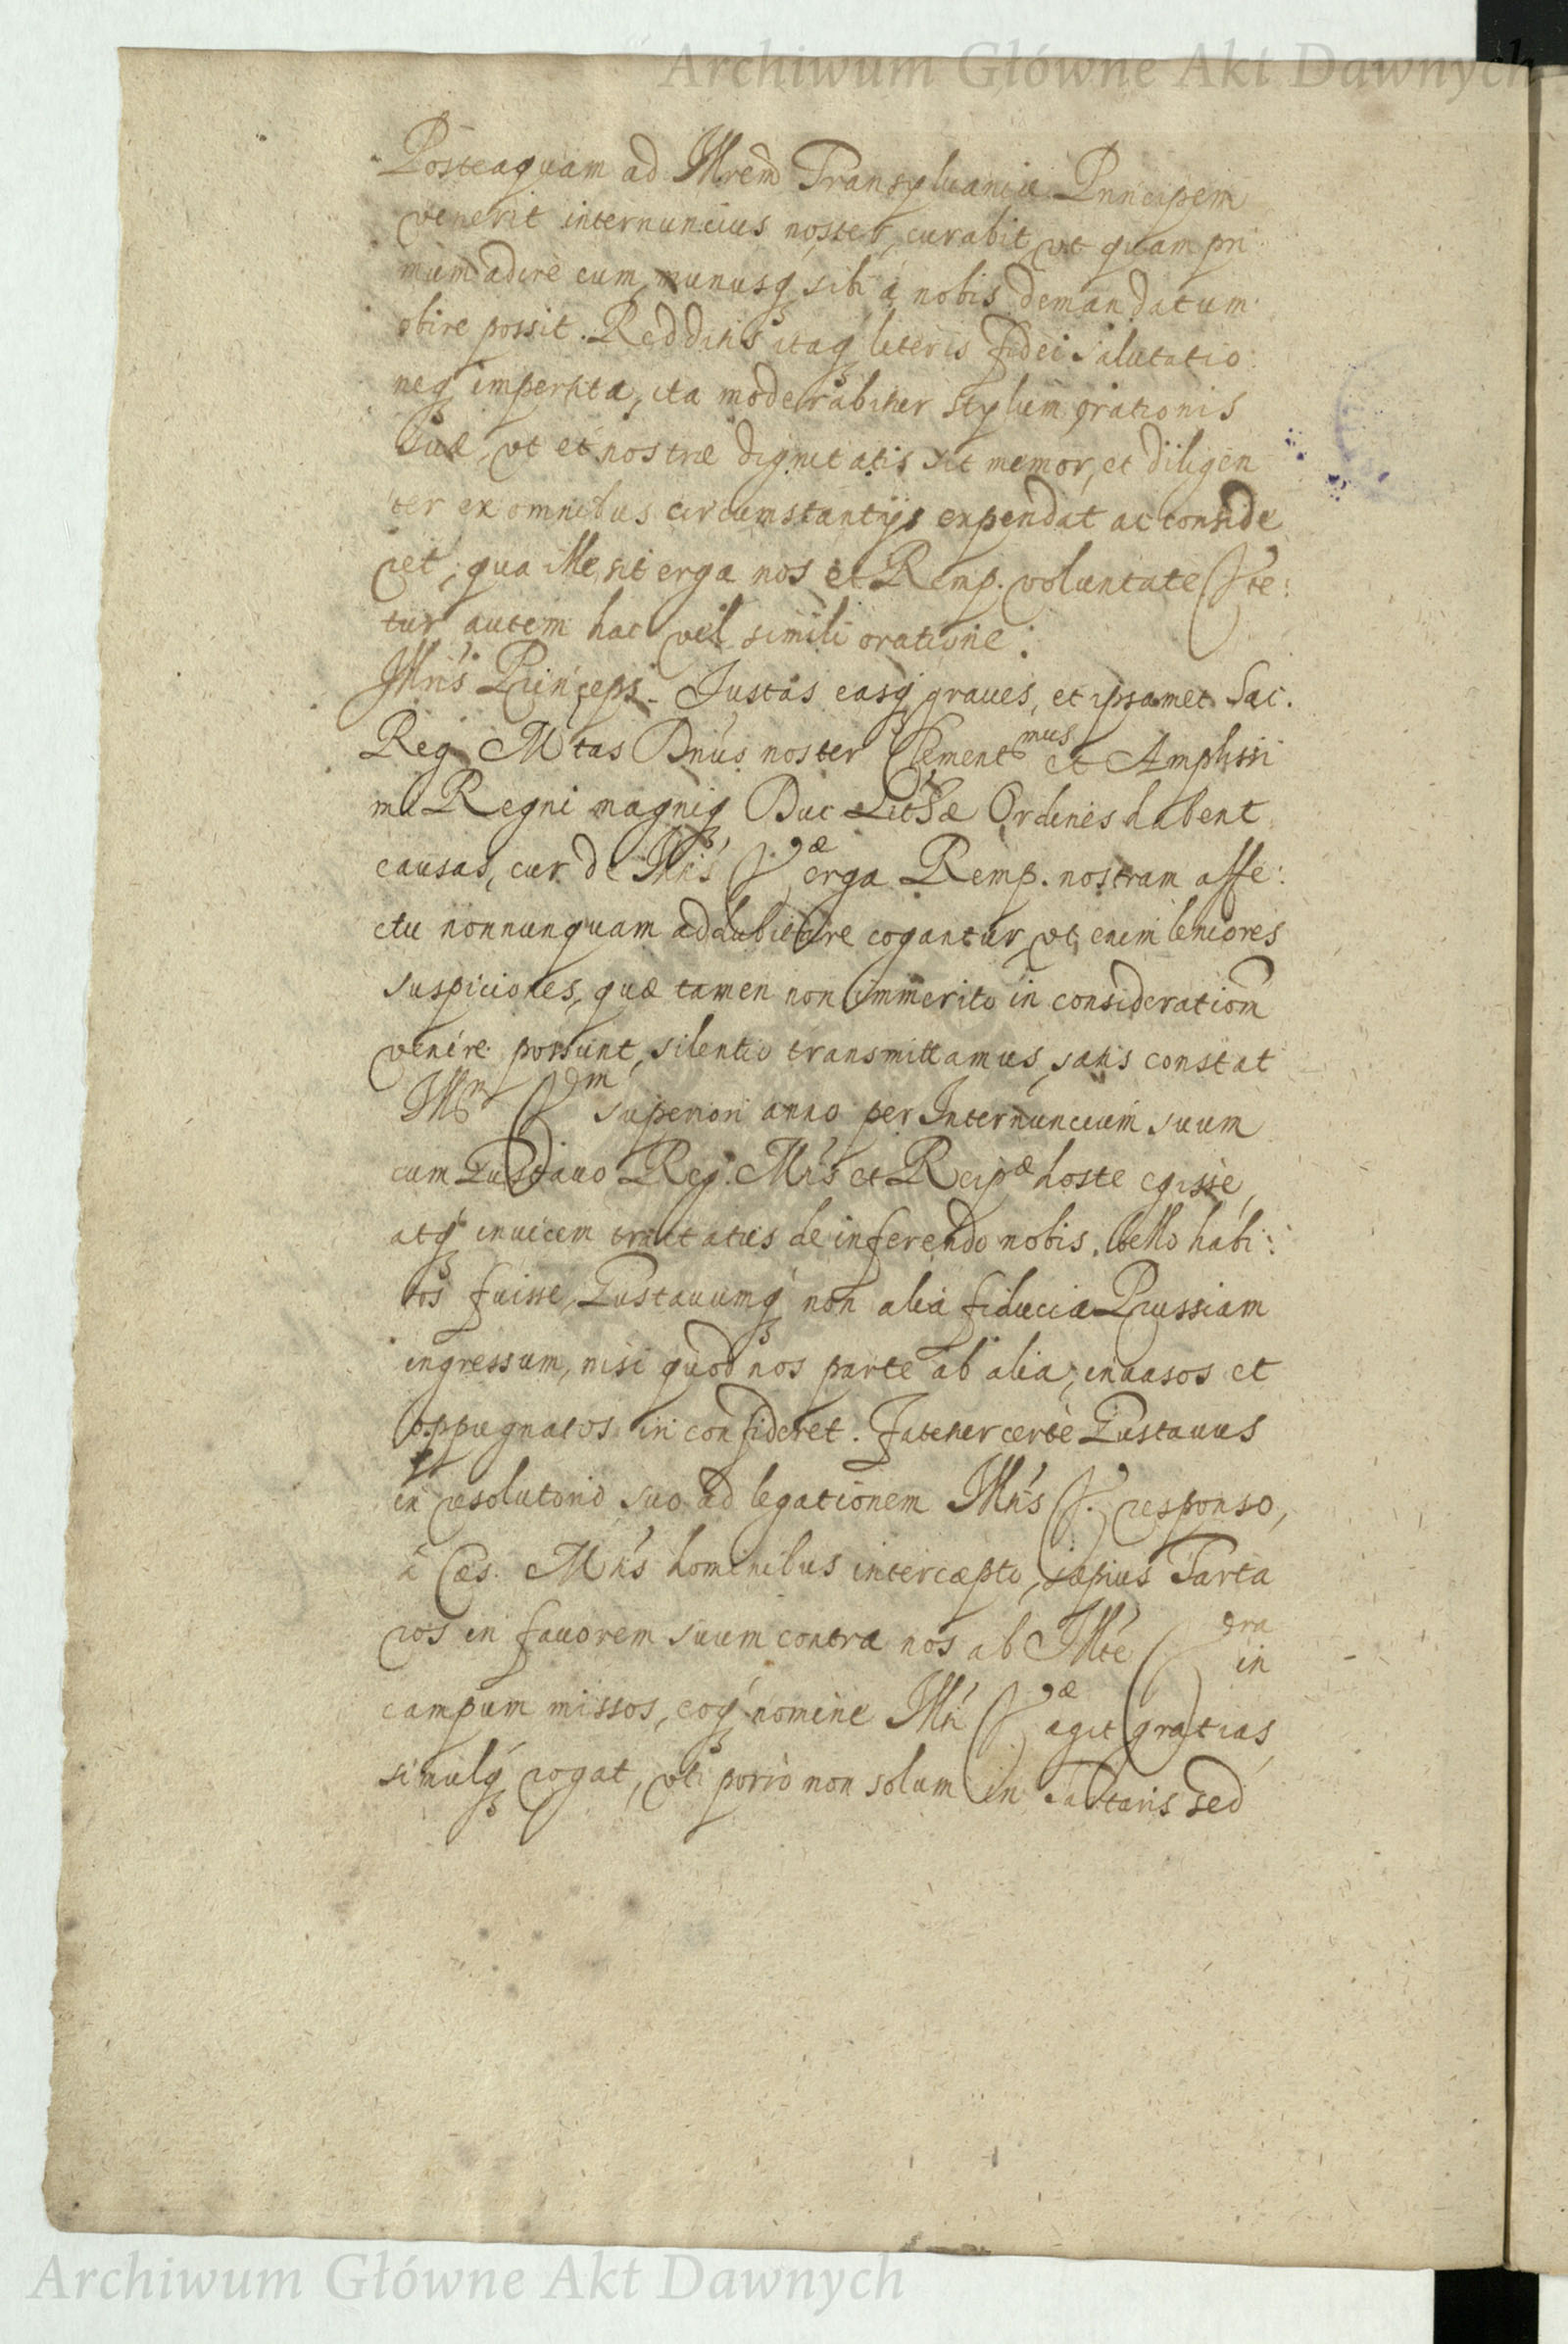 Archiwum Główne Akt Dawnych
Posteaquam ad Illrem Transyluaniæ Principem
venerit internuncius noster, curabit, vt quam pri
mum adire eum, munusq sibi à nobis demandatum
obire possit. Redditis itaq literis fidei salutatio
neq impertita, ita moderabitur stylum orationis
suæ, vt et nostræ dignitatis sit memor, et diligen
ter ex omnibus circumstantijs expendat ac conside
ret, qua ille sit erga nos et Remp. voluntate Vte:
tur autem hac vel simili oratione:
Illris Princeps. Iustas easq graues, et ipsamet Sac.
Reg. Mtas Dnus noster Clementmus et Amplissi
mi Regni magniq Duc Lithæ Ordines habent
causas, cur de Illris V. æ erga Remp. nostram affe:
ctu nonnunquam addubitare cogantur, vt enim leniores
suspiciones, quæ tamen non immerito in consideratiom
venire possunt, silentio transmittamus, satis constat
Illm V. m superiori anno per Internuncium suum
cum Gustauo Reg. Mtis et Reipæ hoste egisse,
atq inuicem tractatus de inferendo nobis bello habi:
tos fuisse, Gustauumq non alia fiducia Prussiam
ingressum, nisi quod nos parte ab alia, inuasos et
oppugnatos iri confideret. Fatetur certe Gustauus
in resolutorio suo ad legationem Illris V. responso,
à Cæs. Mtis hominibus intercæpto, sæpius Tarta
ros in fauorem suum contra nos ab Illte V. ra in
campum missos, eoq nomine Illri V. æ agit gratias
simulq rogat, vti porro non solum in Tartaris sed
Archiwum Główne Akt Dawnych